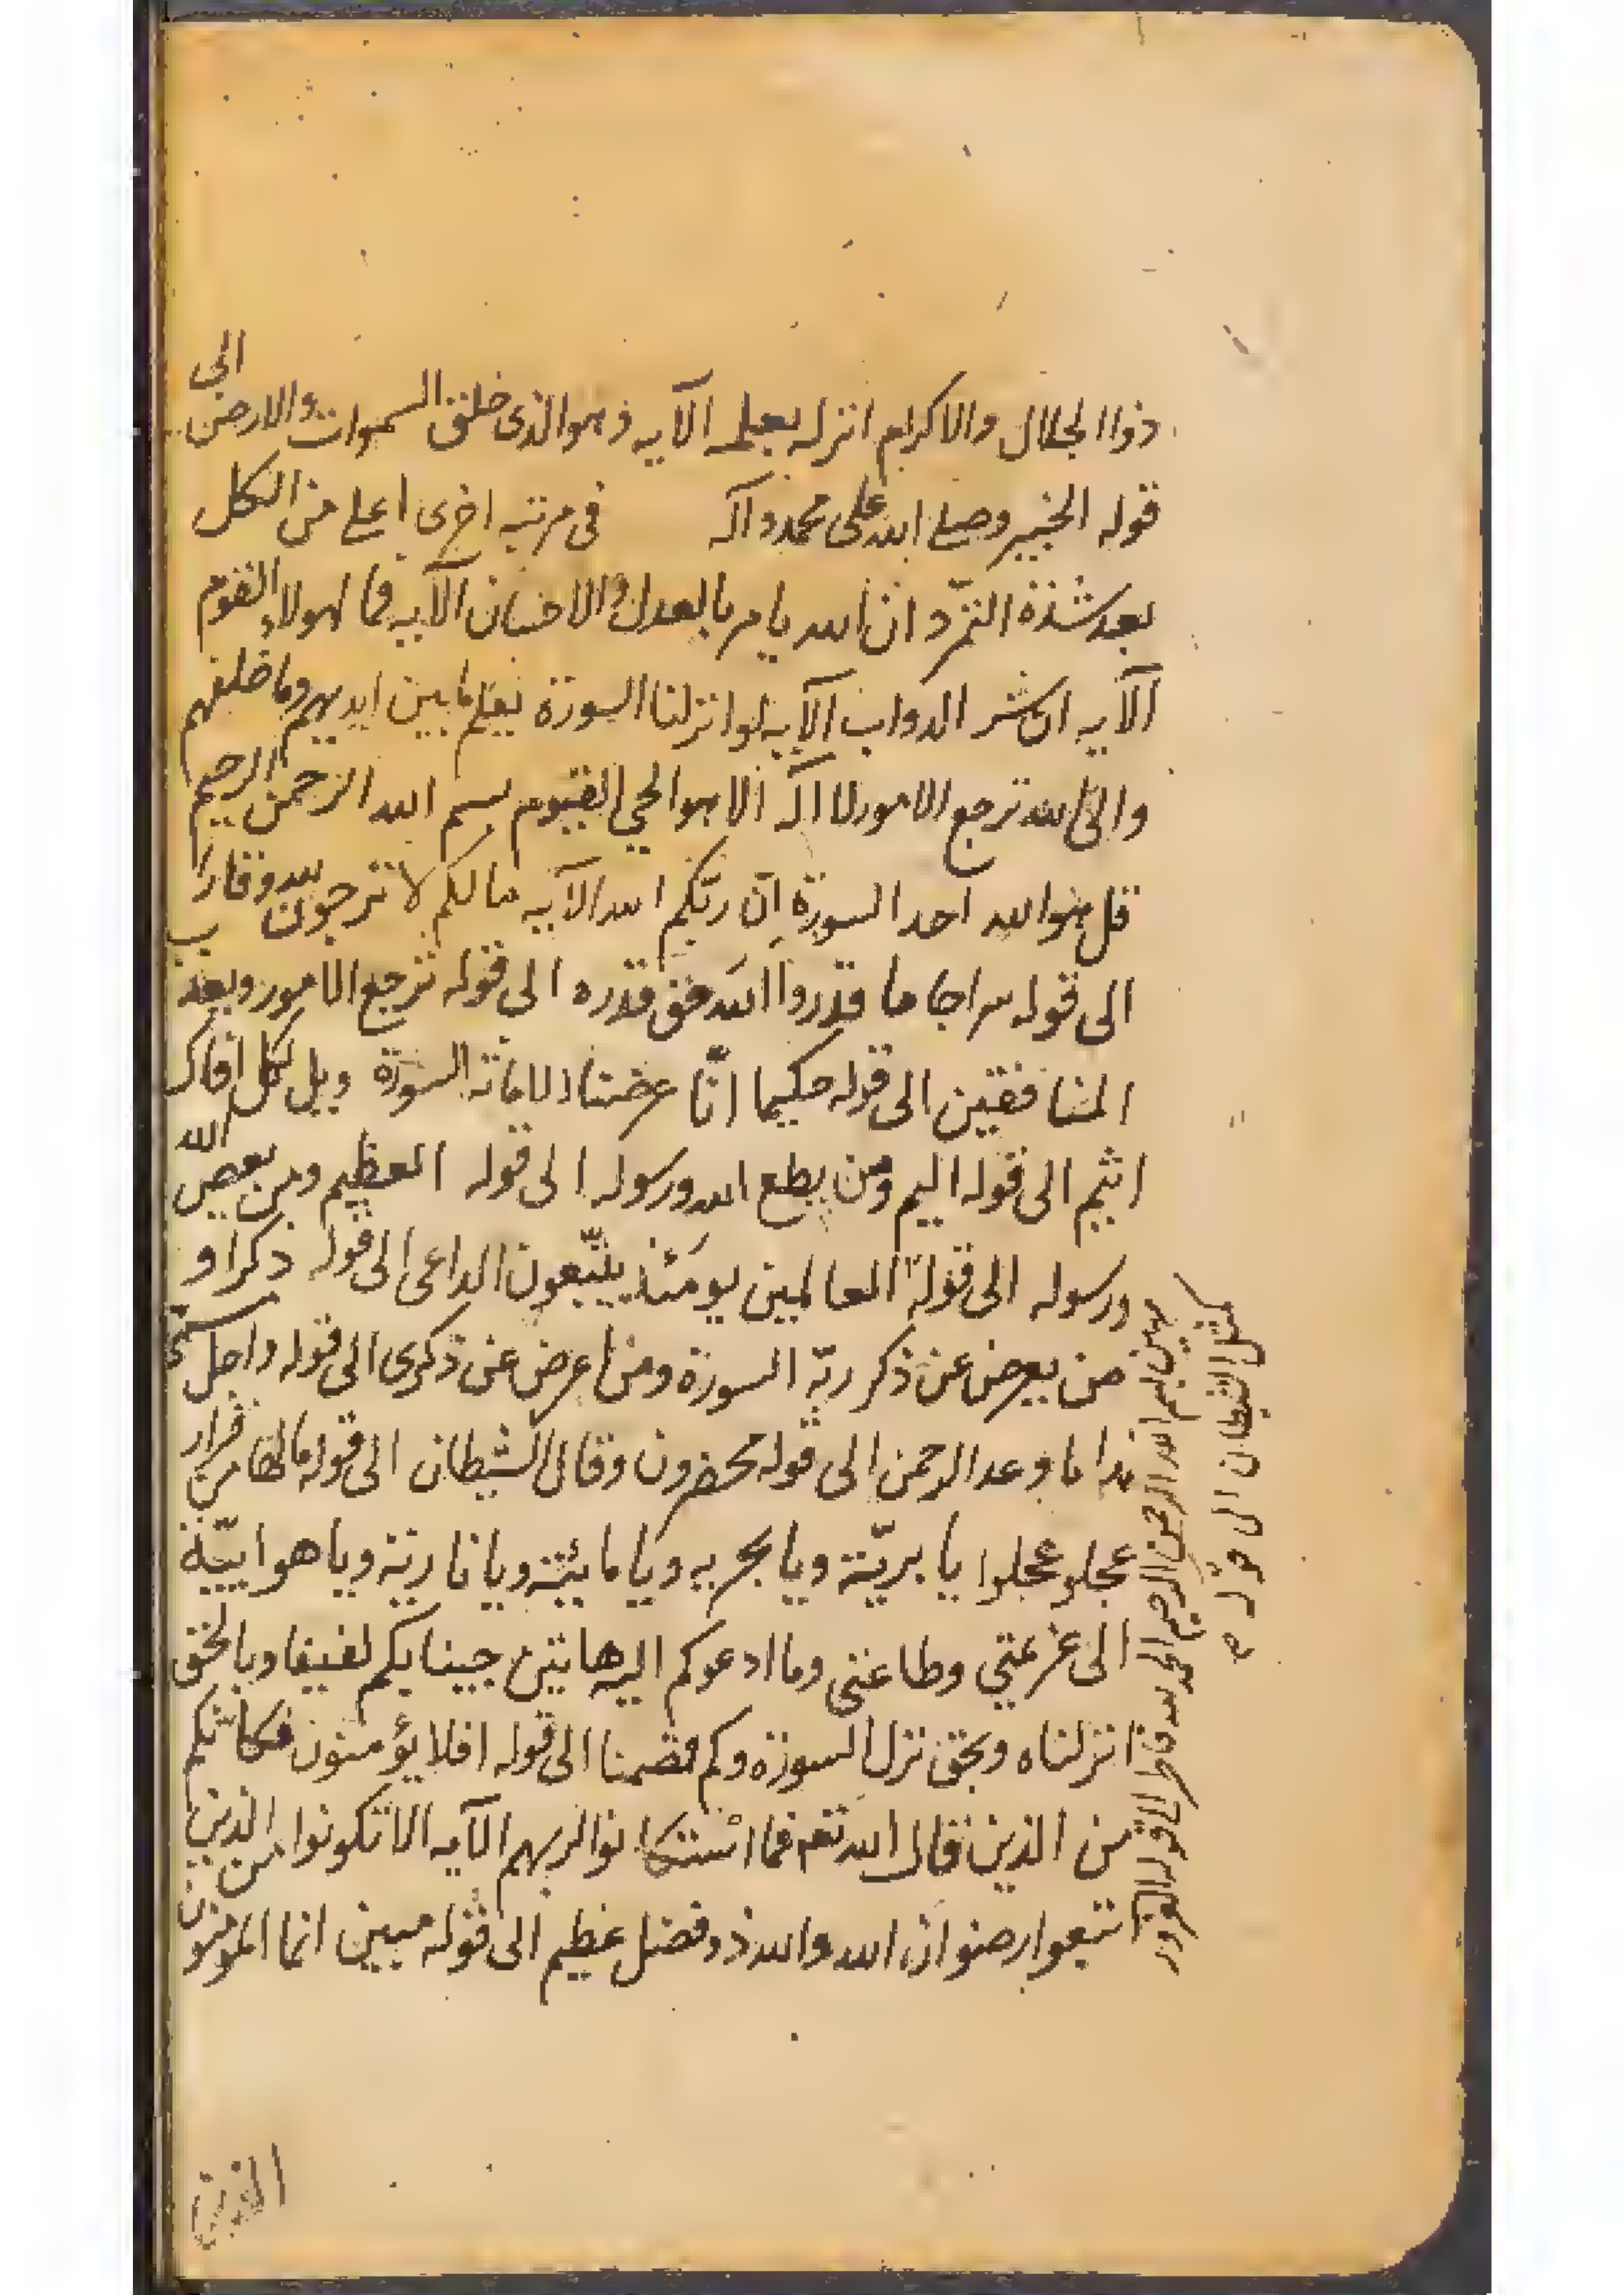 ذوا الجلال والاكرام انزله بعلمه الآيه وهو الذى خلق السموات والارض الى
قوله الخبير وصلى الله على محمد وآله فى مرتبه اخرى اعلى من الكل
بعد شدة التمرّد ان الله يامر بالعدل والاحسان الآيه فما لهولاء القوم
الآيه ان شر الدواب الآيه لو انزلنا السورة يعلم ما بين ايديهم وما خلفهم
والى الله ترجع الامور لا اله الا هو الحي القيوم بسم الله الرحمن الرحيم
قل هو الله احد السورة ان ربّكم الله الآيه مالكم لا ترجون لله وقارا
الى قوله سراجا ما قدروا الله حق قدره الى قوله ترجع الامور ويعذب
المنافقين الى قوله حكيما انّا عرضنا الامانة السورة ويل لكل افاك
اثيم الى قوله اليم ومن يطع الله ورسوله الى قوله العظيم ومن يعص الله
ورسوله الى قوله العالمين يومئذ يتّبعون الداعى الى قوله ذكرا و
من يعرض عن ذكر ربّه السورة ومن اعرض عن ذكرى الى قوله واجل مسمّى
هذا ما وعد الرحمن الى قوله محضرون وقال الشيطان الى قوله مالها من قرار
عجلو عجلوا يا بريّة ويا بحريه ويا مائيّة ويا ناريّة ويا هوائيّة
الى عزيمتي وطاعتى وما ادعوكم اليه هاتين جينا بكم لفيفا وبالحق
انزلناه وبحق نزل السورة وكم قصمنا الى قوله افلا يؤمنون فكانّكم
من الذين قال الله تعه فما استكانوا لربهم الآيه الا تكونوا من الذين
اتبعوا رضوان الله والله ذو فضل عظيم الى قوله مبين انما المومنون
بسم الله الرحمن الرحيم الحمد لله فاطر الى قوله الغرور
كمثل الشيطان الى قوله
الذين